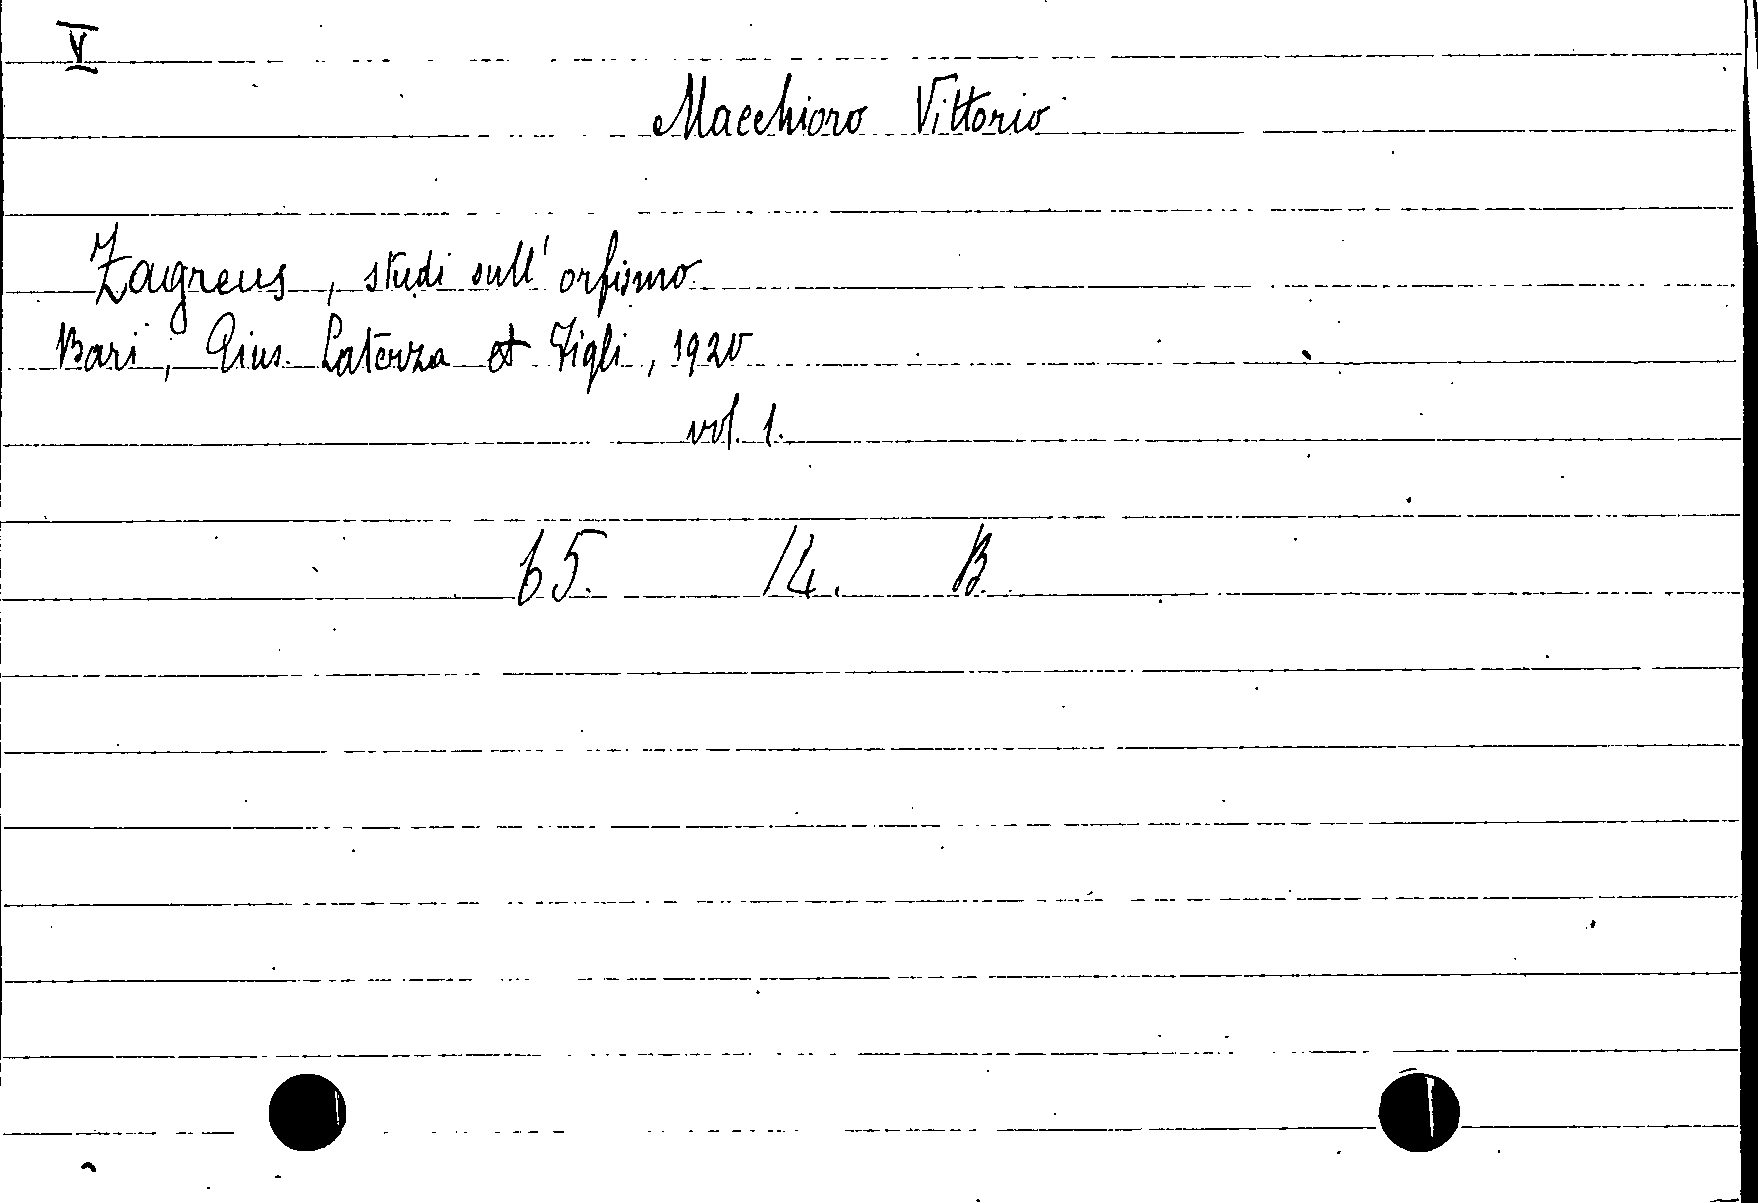 V
Macchioro Vittorio
Zagreus, studi sull' orfismo
Bari, Gius. Laterza et Figli, 1920
vol. 1.
65. 14. B.